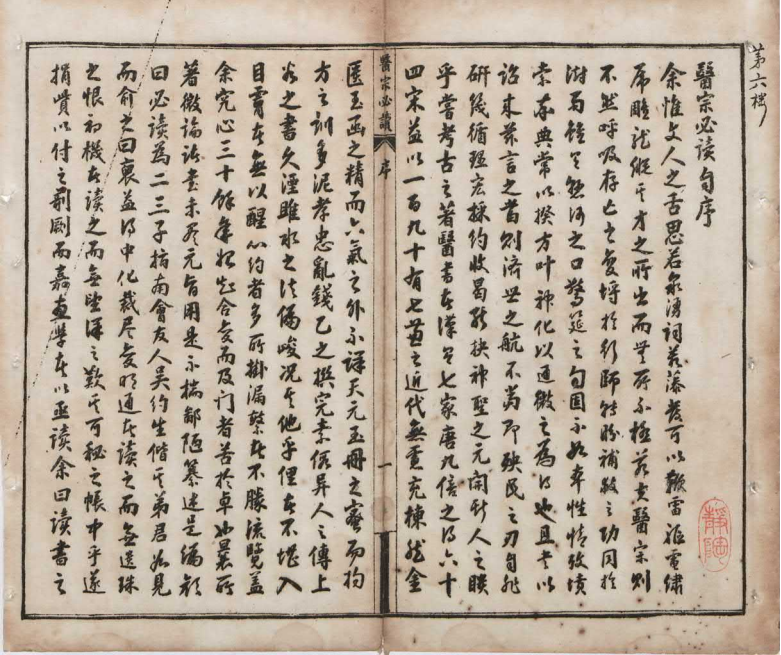 第六標
醫宗必讀自序
余惟文人之舌思若泉湧詞若藻發可以鞭雷驅電繡
虎雕龍縱其才之所出而無所不極若夫醫宗則
不然呼吸存亡之變埒於行師轉盼補救之功同於
澍雨雖有懸河之口驚筵之句固不如本性情攷墳
索率典常以揆方叶神化以通微之為得也且夫以
詔來茲言之當則濟世之航不當即殃民之刃自非
研幾循理宏採約收曷能抉神聖之元開斯人之瞶
乎嘗考古之著醫書者漢有七家唐九倍之得六十
四宋益以一百九十有七兼之近代無慮充棟然金
醫宗必讀
序
一
匱玉函之精而六氣之外不詳天元玉冊之密而拘
方之訓多泥孝忠亂錢乙之撰完素假異人之傳上
谷之書久湮睢水之法偏峻況其他乎俚者不堪入
目膚者無以醒心約者多所掛漏繁者不勝流覽蓋
余究心三十餘年始知合變而及門者苦於卓也曩所
著微論諸書未盡元旨用是不揣鄙陋纂述是編顏
曰必讀為二三子指南會友人吳約生偕其弟君如見
而俞之曰裒益得中化裁盡變明通者讀之而無遺珠
之恨初機者讀之而無望洋之歎其可秘之帳中乎遂
捐貲以付之剞劂而嘉惠學者以亟讀余曰讀書之
靜陶